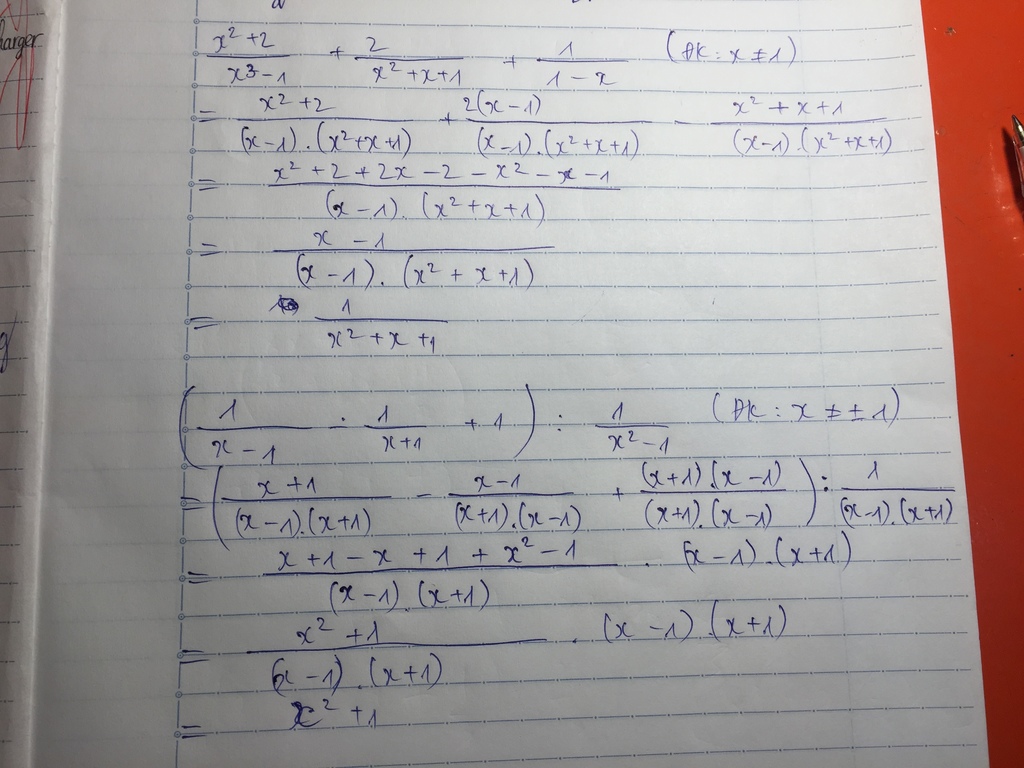 harger
(x²+2)/(x³-1) + 2/(x²+x+1) + 1/(1-x) (ĐK: x ≠ 1)
= (x²+2)/((x-1).(x²+x+1)) + 2(x-1)/((x-1).(x²+x+1)) - (x²+x+1)/((x-1).(x²+x+1))
= (x²+2+2x-2-x²-x-1)/((x-1).(x²+x+1))
= (x-1)/((x-1).(x²+x+1))
= 1/(x²+x+1)
(1/(x-1) - 1/(x+1) + 1) : 1/(x²-1) (ĐK: x ≠ ±1)
= ((x+1)/((x-1).(x+1)) - (x-1)/((x+1).(x-1)) + ((x+1).(x-1))/((x+1).(x-1))) : 1/((x-1).(x+1))
= (x+1-x+1+x²-1)/((x-1).(x+1)) . (x-1).(x+1)
= (x²+1)/((x-1).(x+1)) . (x-1).(x+1)
= x²+1